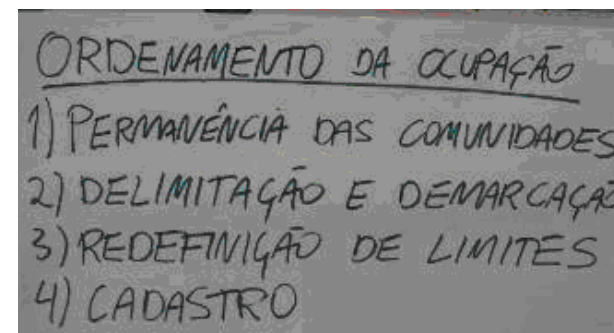 ORDENAMENTO DA OCUPAÇÃO
1) PERMANÊNCIA DAS COMUNIDADES
2) DELIMITAÇÃO E DEMARCAÇÃO
3) REDEFINIÇÃO DE LIMITES
4) CADASTRO